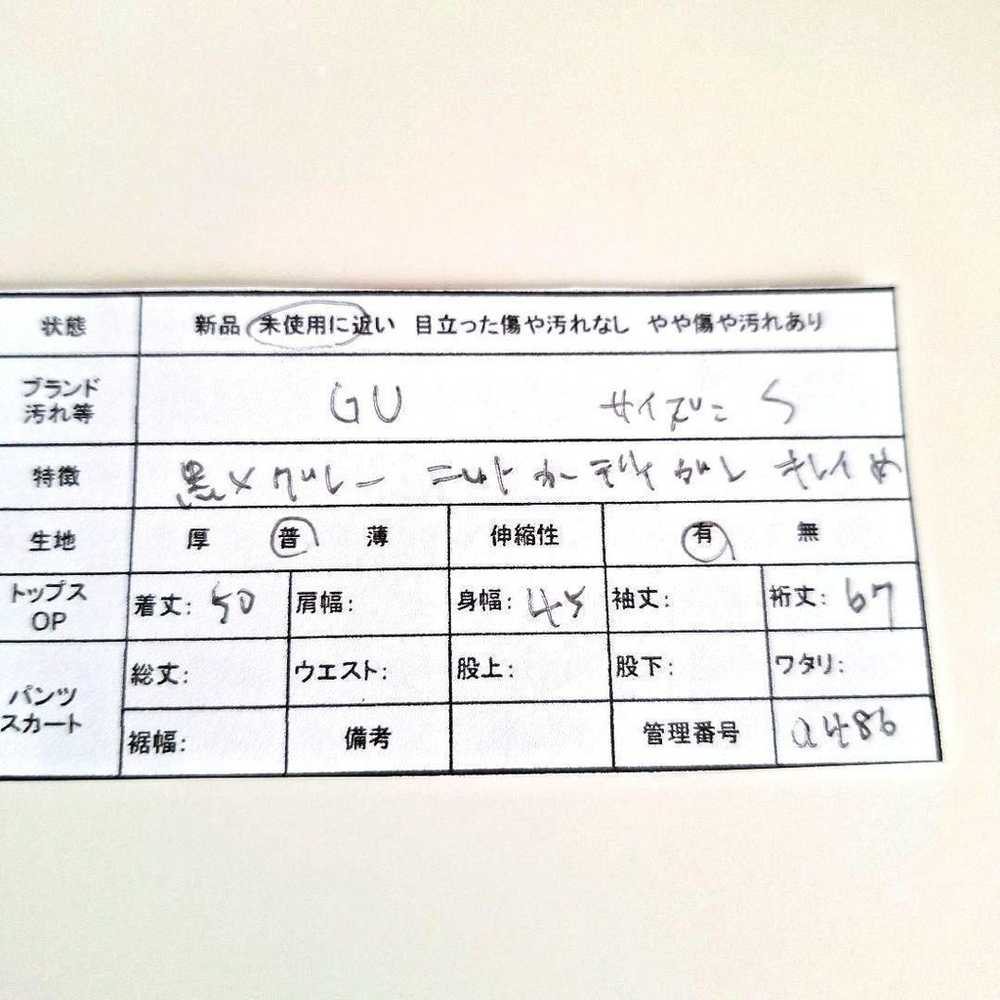 状態 新品 未使用に近い 目立った傷や汚れなし やや傷や汚れあり
ブランド
汚れ等 GU サイズ:S
特徴 黒×グレー ニットカーディガン キレイめ
生地 厚 普 薄 伸縮性 有 無
トップス
OP 着丈: 50 肩幅: 身幅: 45 袖丈: 裄丈: 67
パンツ
スカート 総丈: ウエスト: 股上: 股下: ワタリ:
裾幅: 備考 管理番号 a486